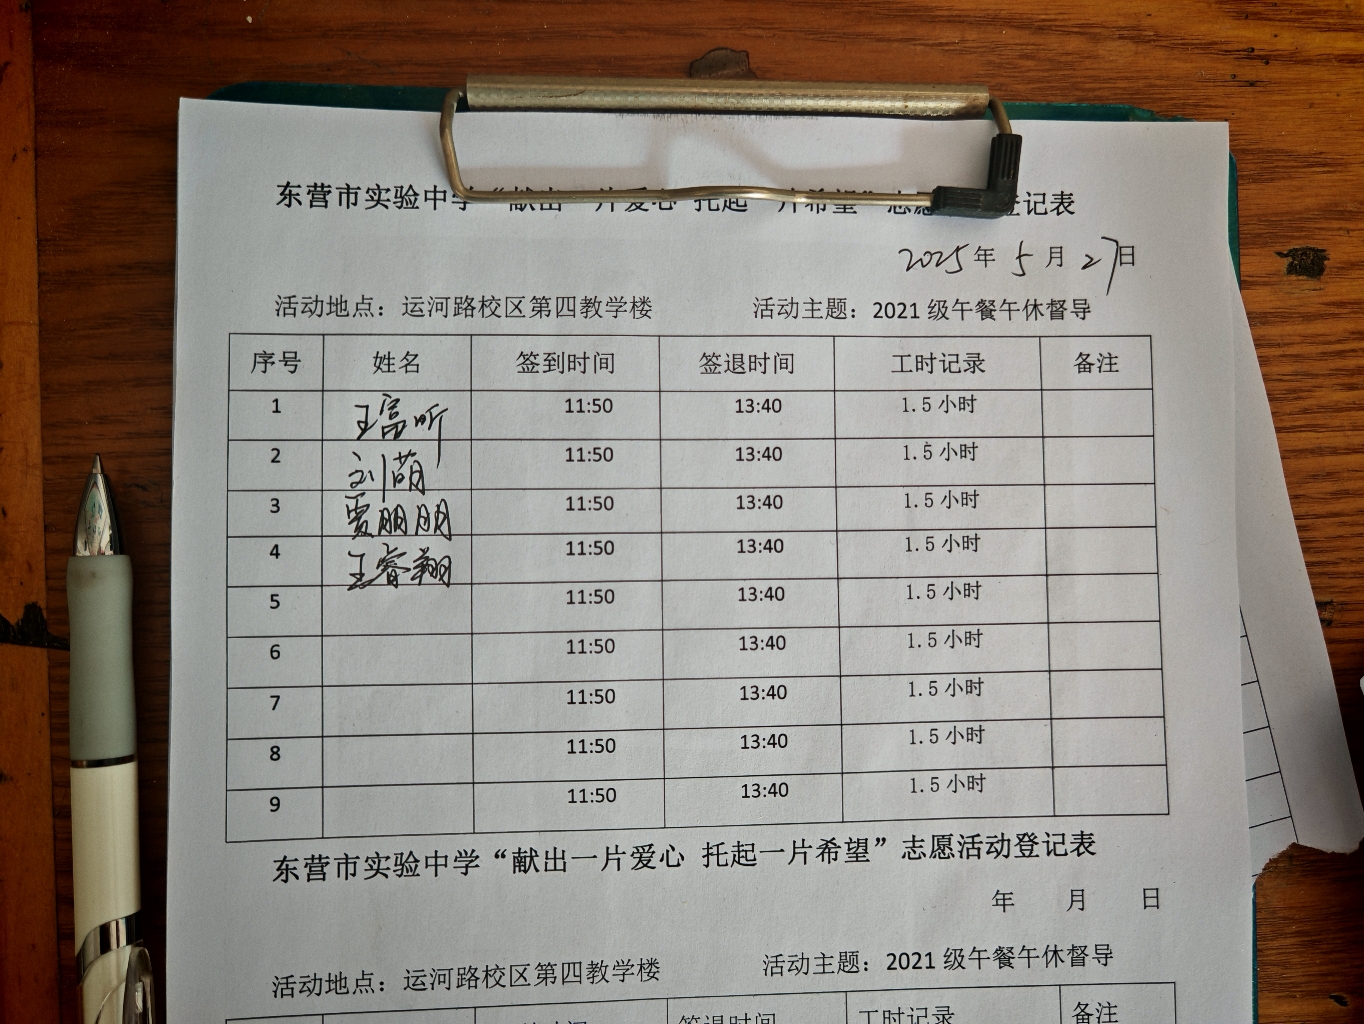 东营市实验中学“献出一片爱心 托起一片希望”志愿 登记表
2025年 5 月 27日
活动地点：运河路校区第四教学楼 活动主题：2021 级午餐午休督导
序号 姓名 签到时间 签退时间 工时记录 备注
1 王富昕 11:50 13:40 1.5 小时
2 刘萌 11:50 13:40 1.5 小时
3 贾朋朋 11:50 13:40 1.5 小时
4 王睿翔 11:50 13:40 1.5 小时
5 11:50 13:40 1.5 小时
6 11:50 13:40 1.5 小时
7 11:50 13:40 1.5 小时
8 11:50 13:40 1.5 小时
9 11:50 13:40 1.5 小时
东营市实验中学“献出一片爱心 托起一片希望”志愿活动登记表
年 月 日
活动地点：运河路校区第四教学楼 活动主题：2021 级午餐午休督导
签退时间 工时记录 备注